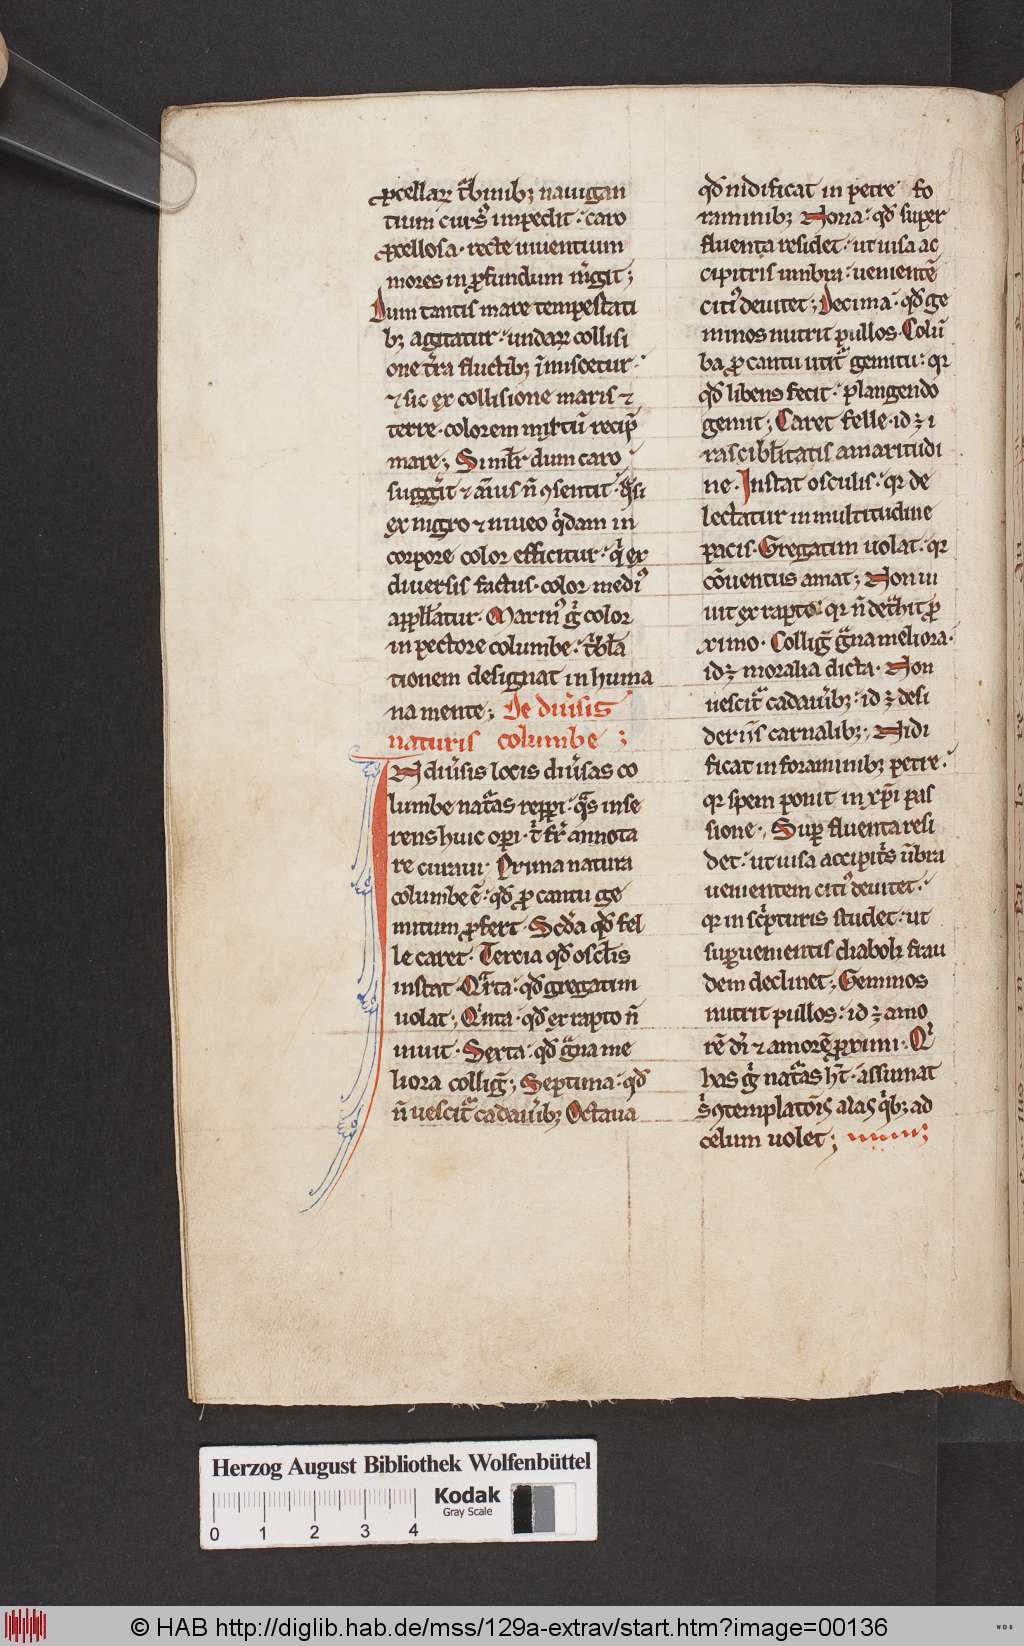 ꝓcellaꝝ t̾binibꝫ nauigan
tium curs᷒ impedit· caro
ꝓcellosa· recte uiuentium
mores in ꝓfundum m̾git;
Dum tantis mare tempestati
bꝫ agitatur· undaꝝ collisi
one t̾ra fluctibꝫ īmiscetur·
⁊ sic ex collisione maris ⁊
terre· colorem mixtū recip̄
mare; Simil̾r dum caro
sugg̾it ⁊ aīus n̄ ꝯsentit· q̾si
ex nigro ⁊ niueo q̾dam in
corpore color efficitur· qͥ ex
diuersis factus· color medi᷒
appell̾atur· Marin᷒ gͥ color
in pectore columbe· t̾bl̾a
tionem designat in huma
na mente; De diu̾sis
naturis columbe;
IN diu̾sis locis diu̾sas co
lumbe nat̾as rep̲p̲i· q̾s inse
rens huic op̲i· t̾ fr̄ annota
re curaui· Prima natura
columbe ē· qd̾ ꝓ cantu ge
mitum ꝓfert· Scd̾a qd̾ fel
le caret· Tercia qd̾ oscl̾is
instat· Qͣrta· qd̾ gregatim
uolat; Qͥnta· qd̾ ex rapto n̄
uiuit· Sexta· qd̾ gͣna me
liora collig̾; Septima· qd̾
n̄ uescit̾ cadau̾ibꝫ Octaua
qd̾ nidificat in petre fo
raminibꝫ Nona· qd̾ super
fluenta residet· ut uisa ac
cipitris umbra· uenientē
citi᷒ deuitet; Decima· qd̾ ge
minos nutrit pullos· Colū
ba ꝓ cantu utit̾ gemitu· qꝛ
qd̾ libens fecit· plangendo
gemit; Caret felle· id ē i
rascibl̾itatis amaritudi
ne· Instat osculis· qꝛ de
lectatur in multitudine
pacis· Gregatim uolat· qꝛ
cōuentus amat; Non ui
uit ex rapto· qꝛ n̄ det̾hit ꝓ
ximo· Collig̾ gͣna meliora·
id ē moralia dicta· Non
uescit̾ cadau̾ibꝫ· id ē desi
deriis carnalibꝫ· Nidi
ficat in foraminibꝫ petre·
qꝛ spem ponit in xp̄i pas
sione· Sup̲ fluenta resi
det· ut uisa accipit̾s ūbra
uenientem citi᷒ deuitet·
qꝛ in sc̾pturis studet· ut
sup̲uenientis diaboli frau
dem declinet; Geminos
nutrit pullos· id ē amo
rē dī ⁊ amorē ꝓximi· Qͥ
has gͥ nat̾as h̄t· assumat
sͥ ꝯtemplatōis alas qͥbꝫ ad
celum uolet;
Herzog August Bibliothek Wolfenbüttel
Kodak
Gray Scale
0 1 2 3 4
© HAB http://diglib.hab.de/mss/129a-extrav/start.htm?image=00136